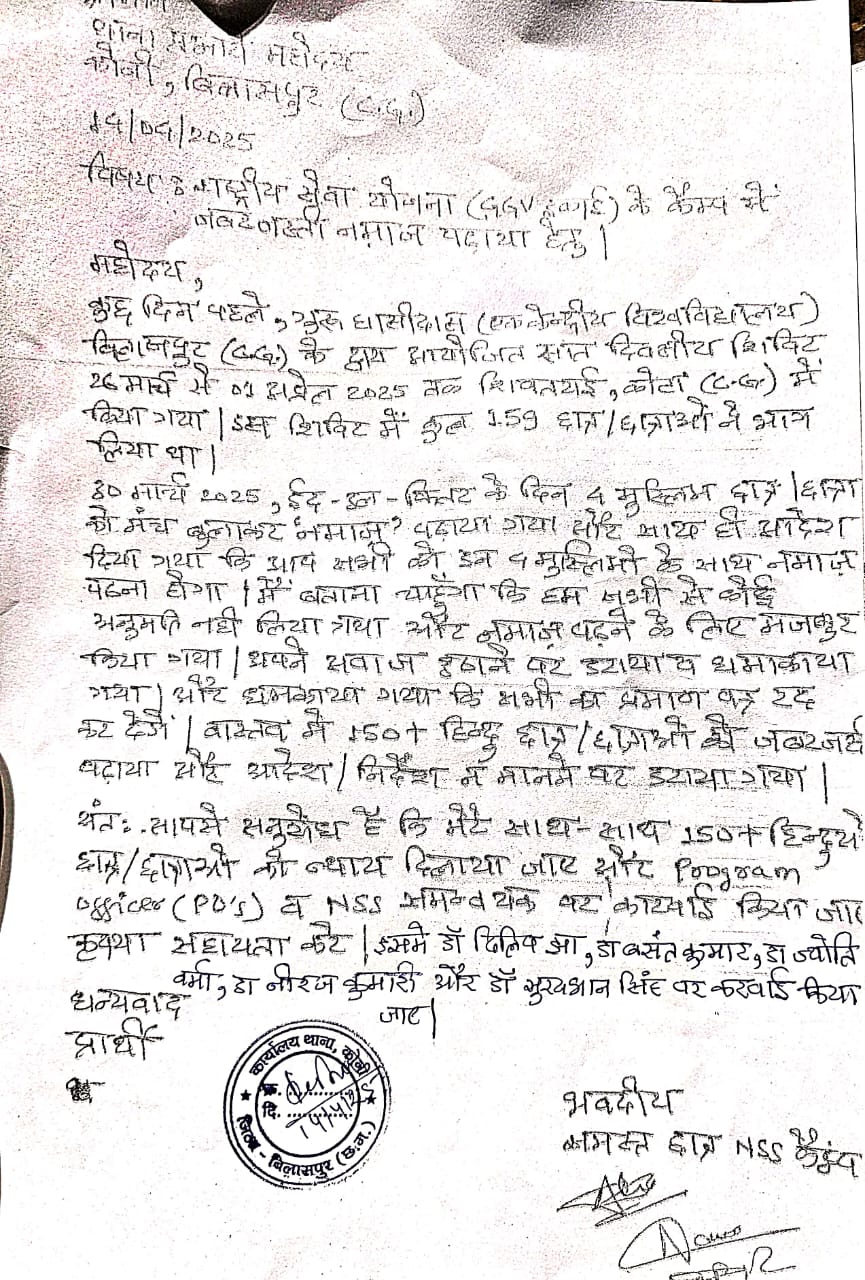 थाना प्रभारी महोदय
कोनी, बिलासपुर (C.G.)
14/04/2025
विषय : राष्ट्रीय सेवा योजना (GGV इकाई) के कैम्प में
जबरजस्ती नमाज पढ़ाया हेतु।
महोदय,
कुछ दिन पहले, गुरू घासीदास (एक केन्द्रीय विश्वविद्यालय)
बिलासपुर (C.G.) के द्वारा आयोजित सात दिवसीय शिविर
26 मार्च से 01 अप्रेल 2025 तक शिवतराई, कोटा (C.G.) में
किया गया। इस शिविर में कुल 159 छात्र/छात्राओं ने भाग
लिया था।
30 मार्च 2025, ईद-उल-फितर के दिन 4 मुस्लिम छात्र/छात्रा
को मंच बुलाकर नमाज़ पढ़ाया गया और साथ ही आदेश
दिया गया कि आप सभी को इन 4 मुस्लिमो के साथ नमाज़
पढना होगा। मैं बताना चाहूँगा कि हम सभी से कोई
अनुमति नही लिया गया और नमाज़ पढ़ने के लिए मजबुर
किया गया। अपने अवाज उठाने पर डराया व धमाकाया
गया। और धमकाया गया कि सभी का प्रमाण पत्र रद्द
कर देगें। वास्तव में 150+ हिन्दु छात्र/छात्राओं को जबरजस्ती
पढ़ाया और आदेश/निर्देश न मानने पर डराया गया।
अंत: आपसे अनुरोध है कि मेरे साथ-साथ 150+ हिन्दुये
छात्र/छात्राओं को न्याय दिलाया जाए और Program
officer (PO's) व NSS समन्वयक पर कारवाई किया जाए
कृपया सहायता करे। इसमे डॉ दिलिप झा, डा बसंत कुमार, डा ज्योति
वर्मा, डा नीरज कुमारी और डॉ सूर्यभान सिंह पर करवाई किया
जाए।
धन्यवाद
प्रार्थी
कार्यालय थाना, कोनी
क्र.
दि. 14/4/25
जिला - बिलासपुर (छ.ग.)
भवदीय
समस्त छात्र NSS कैम्प